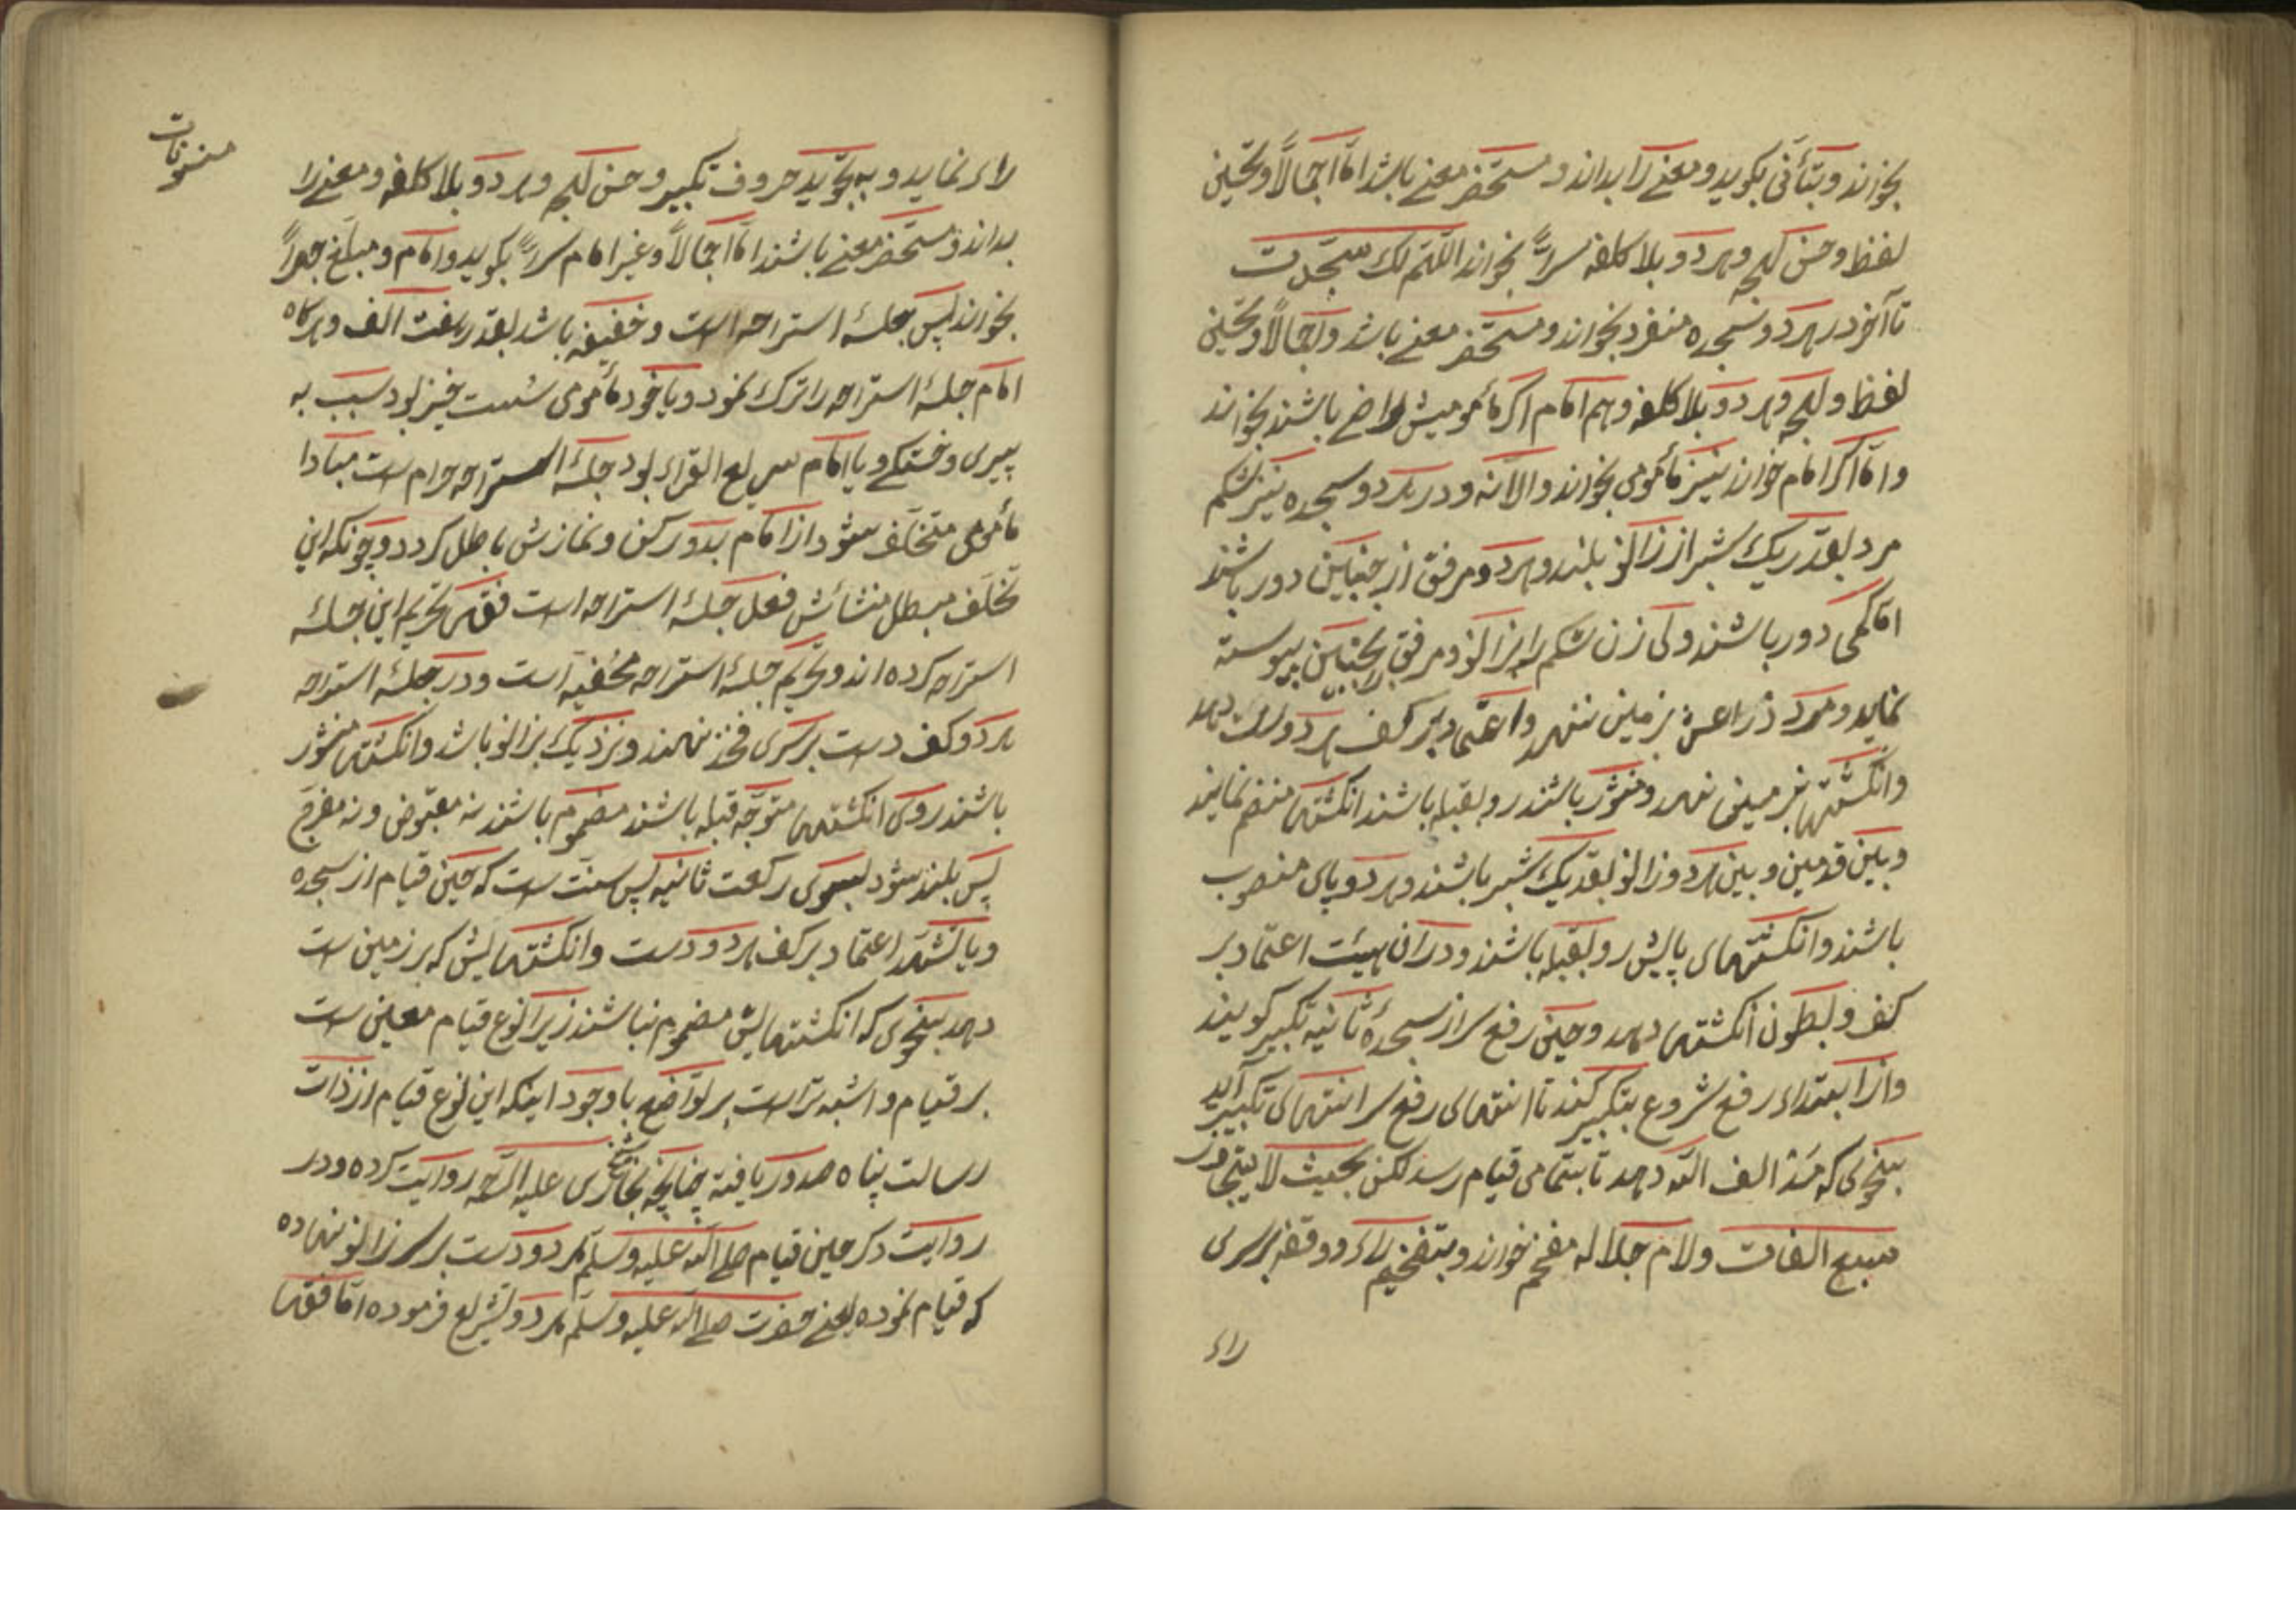 بخواند و بتأنی بگوید و معنے را بداند و مستحضر معنے باشد امّا اجمالاً و تحسین
لفظ و حسن لهجه و هر دو بلا کلفه سرّاً بخواند اللّهم لک سجدت
تا آخر در هر دو سجده منفرد بخواند و مستحضر معنے باشد ولو اجمالاً و تحسین
لفظ و لهجه و هر دو بلا کلفه و هم امام اگر مأمومیش راضے باشند بخواند
و امّا اگر امام خواند نیز مأموم بخواند و الاّ نه و در هر دو سجده نیز شکم
مرد بقدر یک شبر از زانو بلند و هر دو مرفق از جنبین دور باشند
امّا کمی دور باشند ولی زن شکم را بزانو و مرفق بجنبین پیوسته
نماید و مرد ذراعش بزمین ننهد و اعتماد بر کف هر دو دست دهد
و انگشتها بزمین نهد و منشور باشند رو بقبله باشند انگشتها منضم نمایند
و بین قدمین و بین هر دو زانو بقدر یک شبر باشند و هر دو پای منصوب
باشند و انگشتهای پایش رو بقبله باشند و در ان هیئت اعتماد بر
کف و بطون انگشتها دهد و حین رفع سر از سجدهٔ ثانیه تکبیر گویند
و از ابتداء رفع شروع بتکبیر کند تا انتهای رفع سر انتهای تکبیر آید
بنحوی که مدّ الف اللّه دهد تا بتمامی قیام رسد لکن بحیث لا یتجاوز
سبع الفات و لام جلاله مفخم خواند و بتفخیم راء و وقفه بر سری
راء
منویات
راء نماید و به تجوید حروف تکبیر و حسن لهجه و هر دو بلا کلفه و معنے را
بداند و مستحضر معنے باشند امّا اجمالاً و غیر امام سرّاً بگوید و امام و مبلّغ جهراً
بخواند پس جلسهٔ استراحه است و خفیفه باشد بقدر هفت الف و هرگاه
امام جلسهٔ استراحه را ترک نمود و یا خود مأموم سست خیز بود سبب به
پیری و خستگے و یا امام سریع القراء بود جلسهٔ استراحه حرام است مبادا
مأموم متخلّف شود از امام بدو رکن و نمازش باطل گردد و چونکه این
تخلّف مبطل منشائش فعل جلسهٔ استراحه است فقها تحریم این جلسهٔ
استراحه کرده اند و تحریم جلسهٔ استراحه مخفیه است و در جلسهٔ استراحه
هر دو کف دست بر سری فخذ نهند و نزدیک بزانو باشد و انگشتها منشور
باشند روی انگشتها متوجّه قبله باشند مضموم باشند نه مقبوض و نه مفرج
پس بلند شود بسوی رکعت ثانیه پس سنّت است که حین قیام از سجده
و یا تشهّد اعتماد بر کف هر دو دست و انگشتهایش که بر زمین است
دهد بنحوی که انگشتهایش مضموم نباشند زیرا نوع قیام معین است
بر قیام و اشبه تر است بر تواضع با وجود اینکه این نوع قیام از ذات
رسالت پناه صدور یافته چنانچه بخاری علیه الرحمه روایت کرده و در
روایت دکر حین قیام صلے اللّه علیه وسلّم هر دو دست بر سر زانو نهاده
که قیام نموده یعنے حضرت صلے اللّه علیه وسلّم هر دو تشریع فرموده امّا فقها